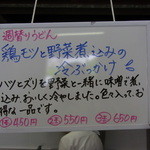 週替りうどん
鶏モツと野菜煮込みの
冷ぶっかけ
ハツとズリを野菜と一緒に味噌で煮
込み、おいしく冷やしました。色々入って、お
得な一品です。
450円 550円 650円